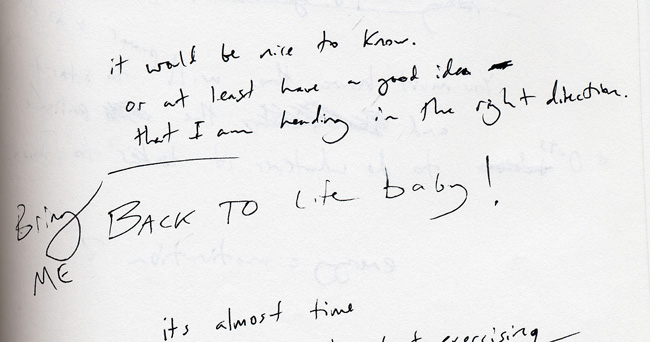 it would be nice to know.
or at least have a good idea
that I am heading in the right direction.
Bring
ME
BACK TO Life baby!
its almost time
exercising